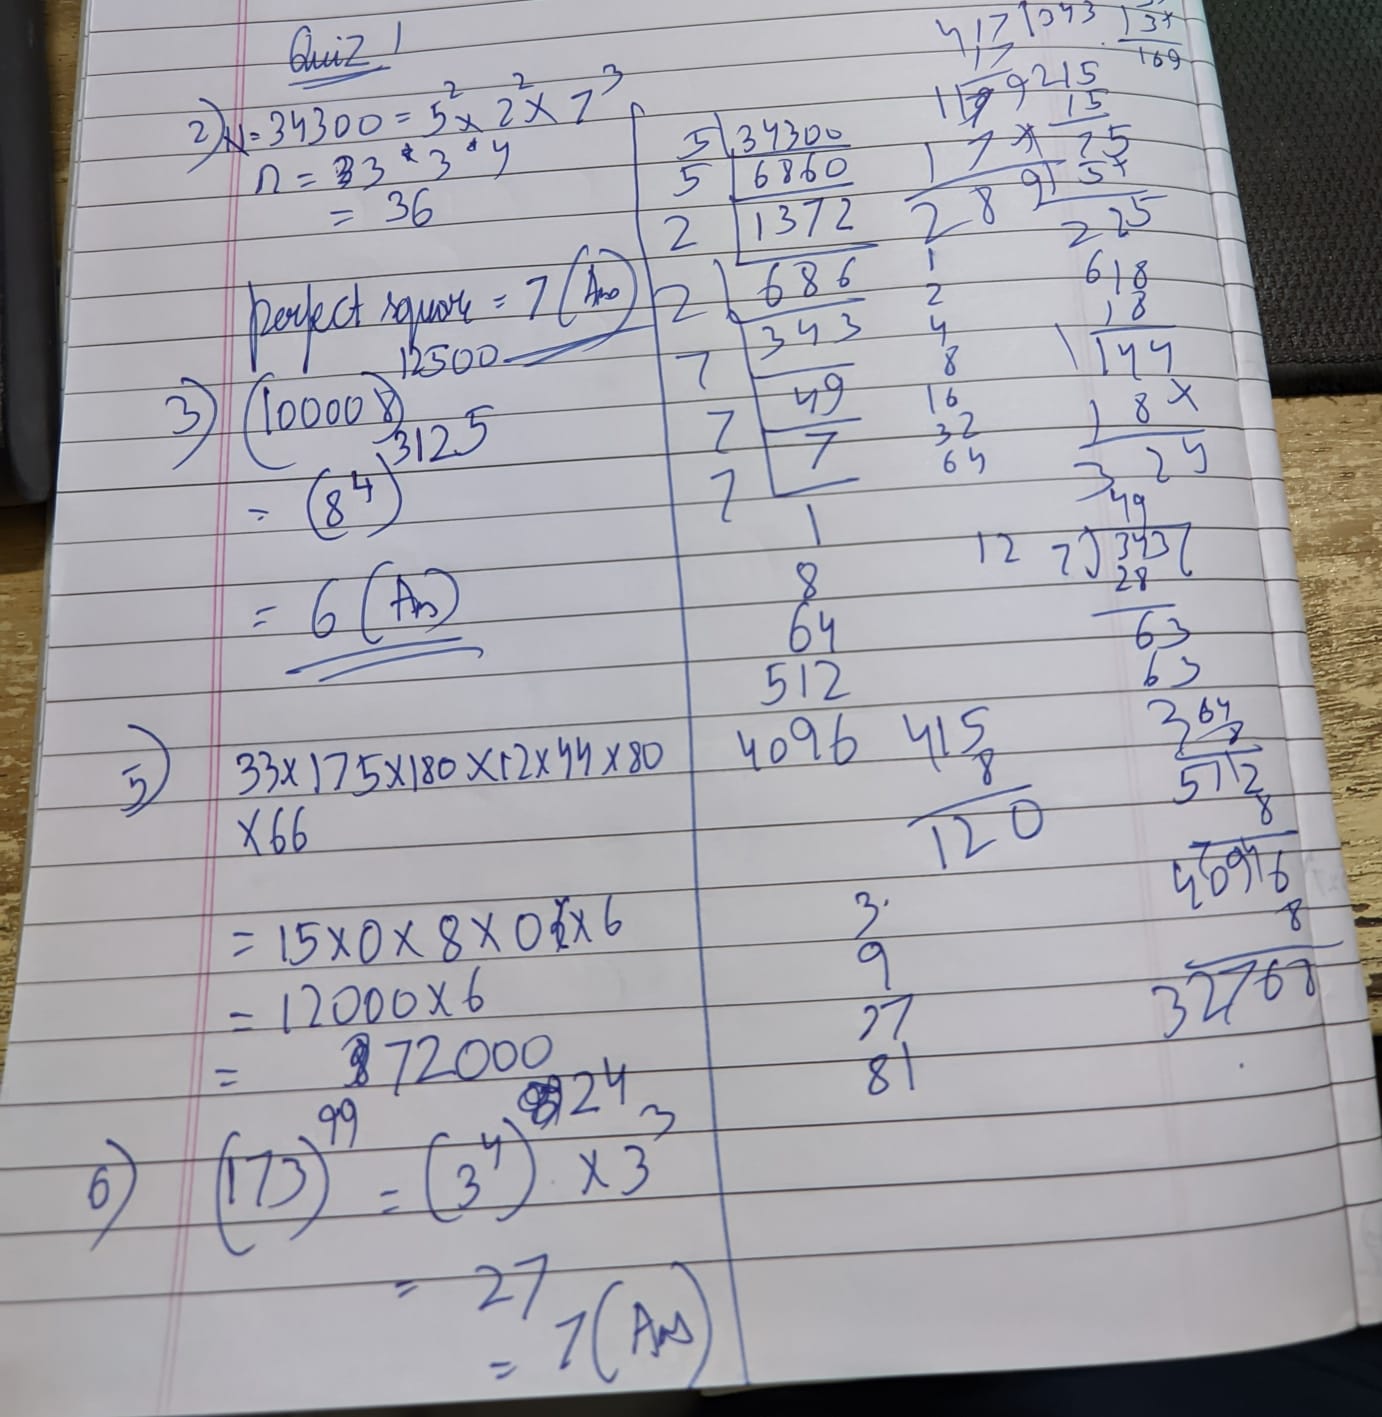 Quiz 1
2) N = 34300 = 5² × 2² × 7³
n = 3 * 3 * 4
= 36
perfect square = 7 (Ans)
3) (10008)¹²⁵⁰⁰
= (8⁴)³¹²⁵
= 6 (Ans)
5) 33×175×180×12×44×80
×66
= 15×0×8×0×6
= 12000×6
= 72000
6) (173)⁹⁹ = (3⁴)²⁴ × 3³
= 27
= 7 (Ans)
5 | 34300
5 | 6860
2 | 1372
2 | 686
7 | 343
7 | 49
7 | 7
1
8
64
512
4096
3
9
27
81
1
2
4
8
16
32
64
12
415
8
120
417
17
119
17×
289
1343
13×
169
215
15
75
225
618
18
144
18×
324
49
7)343(
28
63
63
364
8
512
8
4096
8
32768